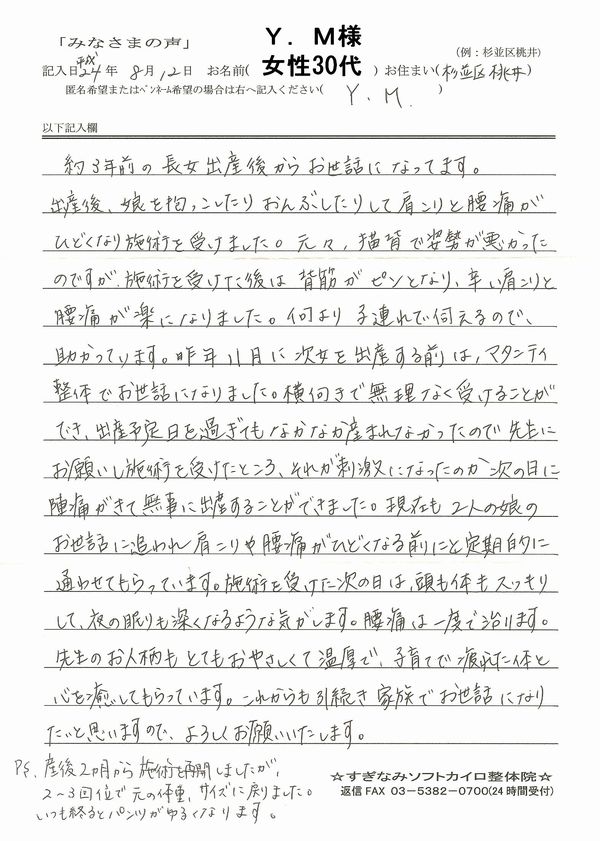 「みなさまの声」
Y．M様
女性30代
(例：杉並区桃井)
記入日 平成24年 8月12日 お名前( )お住まい(杉並区桃井)
匿名希望またはﾍﾟﾝﾈｰﾑ希望の場合は右へ記入ください( Y. M. )
以下記入欄
約3年前の長女出産後からお世話になってます。
出産後、娘を抱っこしたりおんぶしたりして肩こりと腰痛が
ひどくなり施術を受けました。元々、猫背で姿勢が悪かった
のですが、施術を受けた後は背筋がピンとなり、辛い肩こりと
腰痛が楽になりました。何より子連れで伺えるので、
助かっています。昨年11月に次女を出産する前は、マタニティ
整体でお世話になりました。横向きで無理なく受けることが
でき、出産予定日を過ぎてもなかなか産まれなかったので先生に
お願いし施術を受けたところ、それが刺激になったのか次の日に
陣痛がきて無事に出産することができました。現在も2人の娘の
お世話に追われ肩こりや腰痛がひどくなる前にと定期的に
通わせてもらっています。施術を受けた次の日は、頭も体もスッキリ
して、夜の眠りも深くなるような気がします。腰痛は一度で治ります。
先生のお人柄もとてもおやさしくて温厚で、子育てで疲れた体と
心を癒してもらっています。これからも引続き家族でお世話になり
たいと思いますので、よろしくお願いいたします。
PS、産後2カ月から施術を再開しましたが、
2〜3回位で元の体重、サイズに戻りました。
いつも終るとパンツがゆるくなります。
☆すぎなみソフトカイロ整体院☆
返信FAX 03−5382−0700(24時間受付)